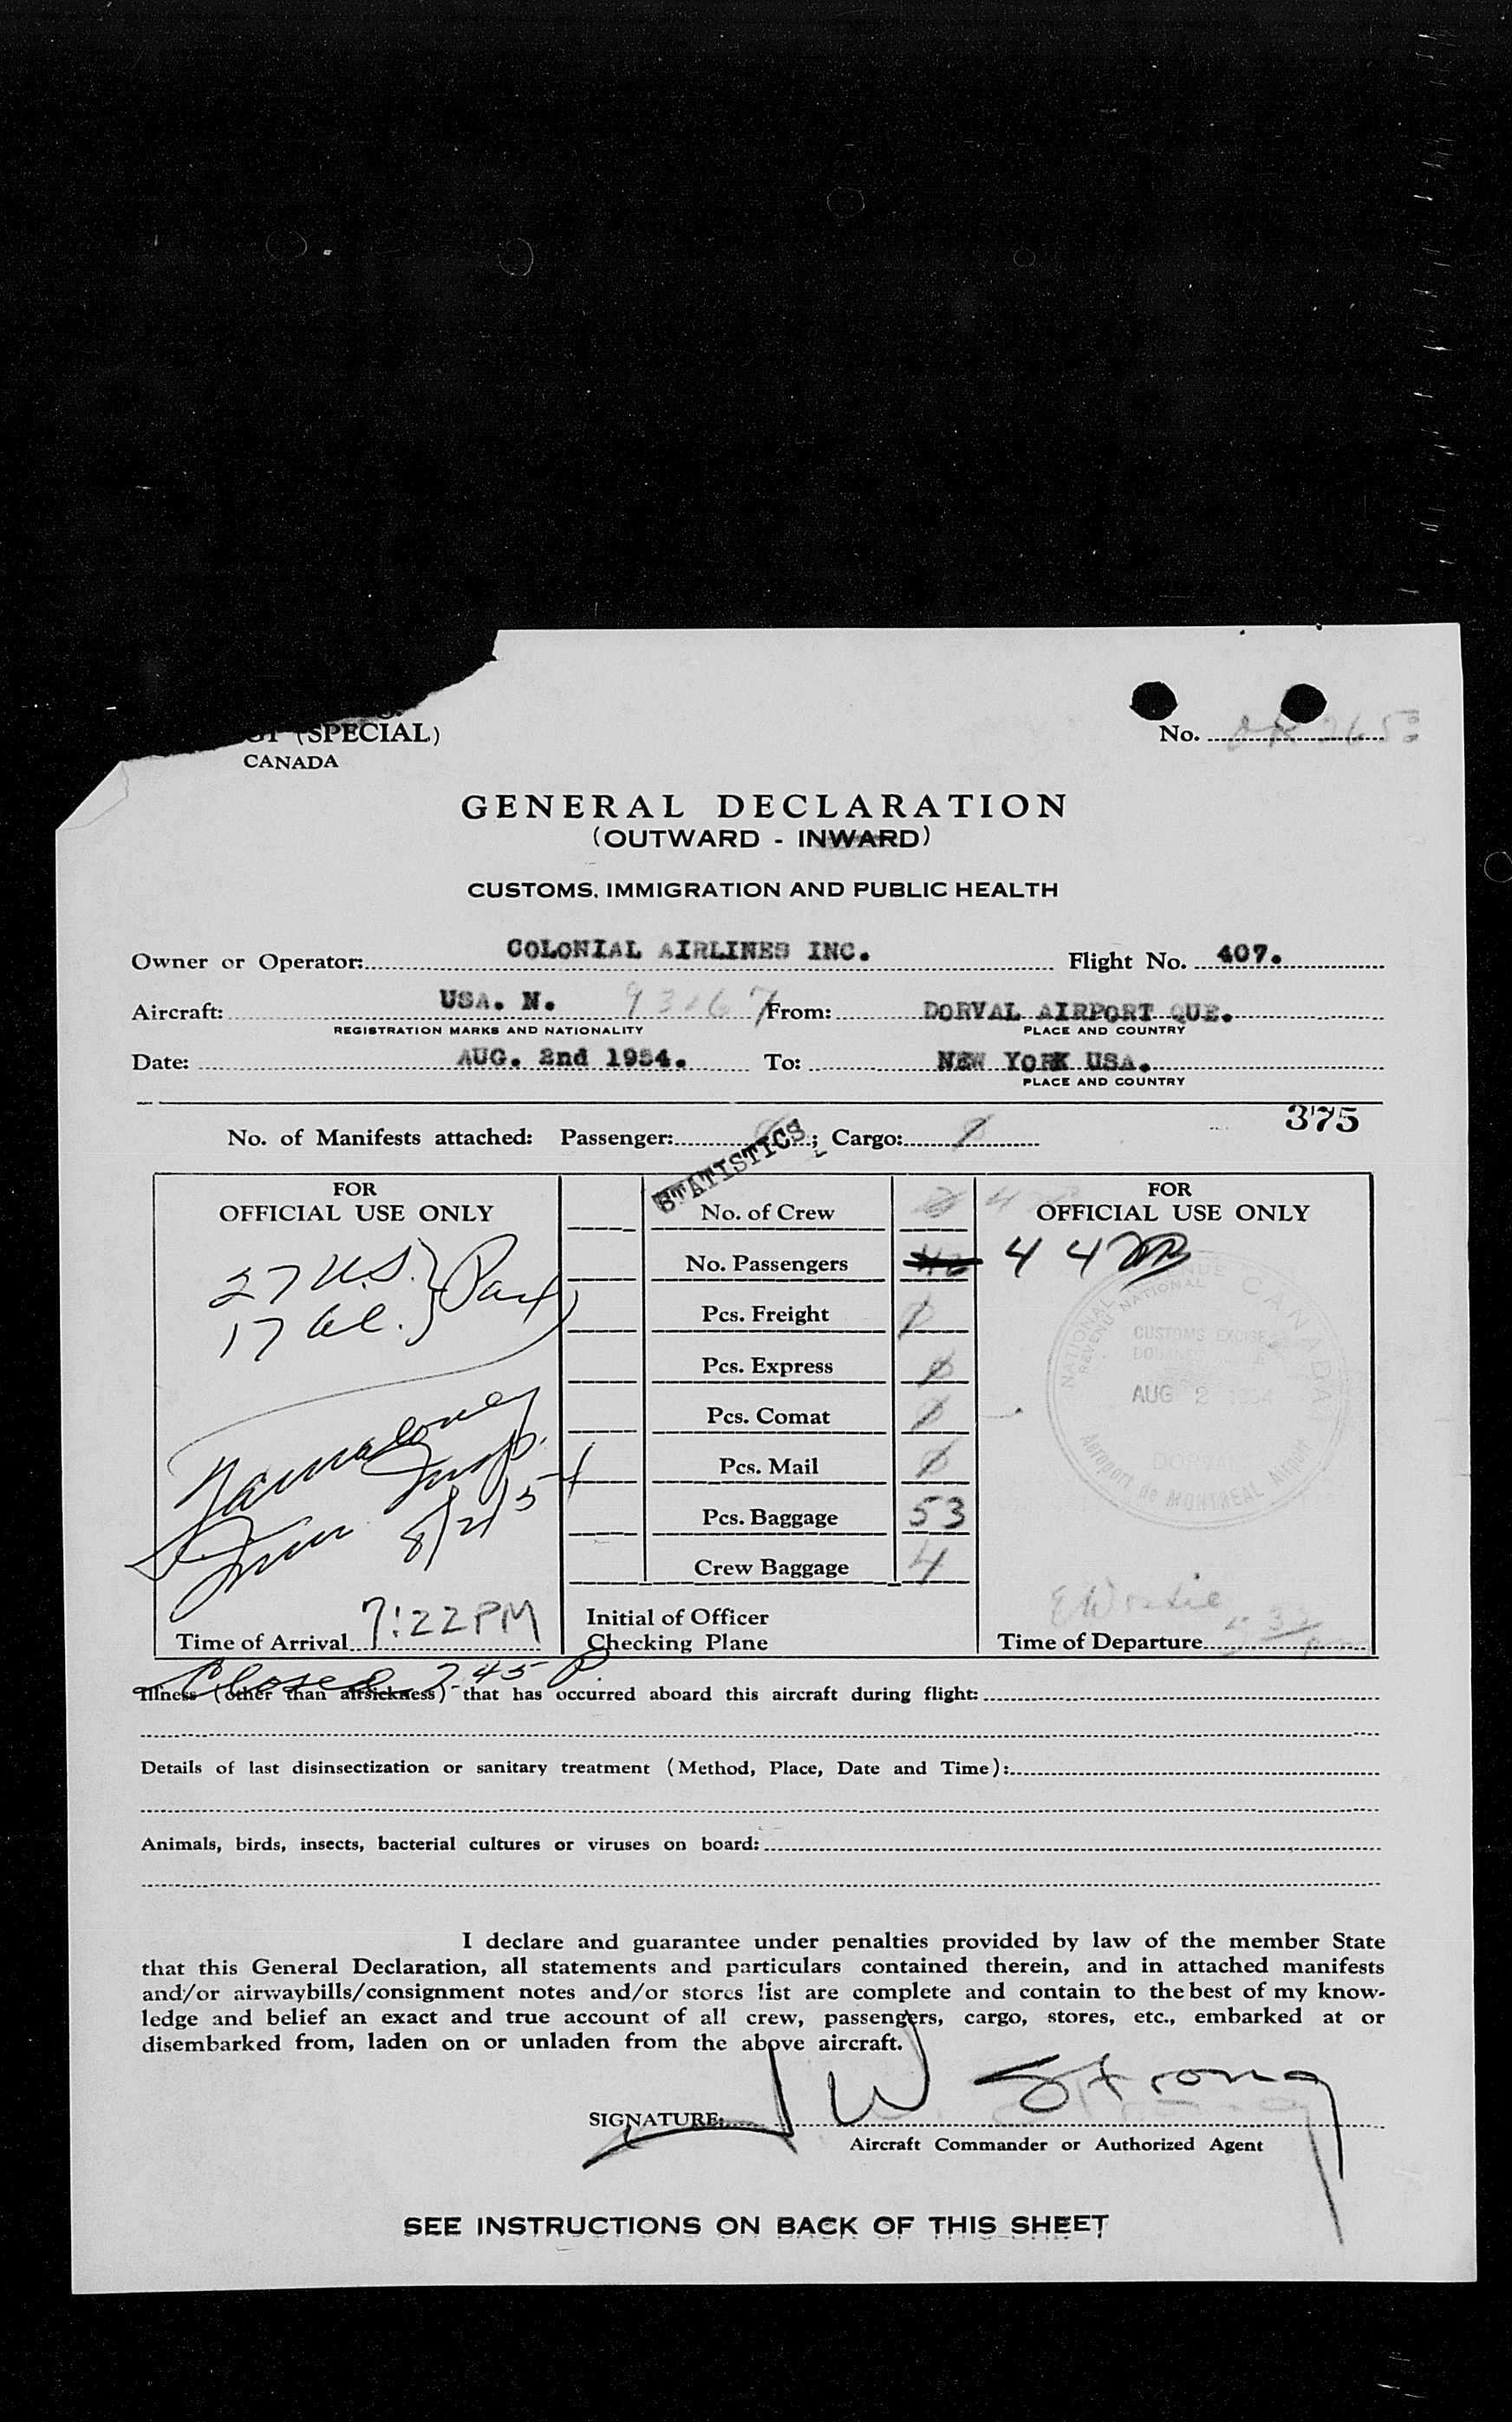 (SPECIAL)
CANADA
No.
GENERAL DECLARATION
(OUTWARD - INWARD)
CUSTOMS, IMMIGRATION AND PUBLIC HEALTH
Owner or Operator: COLONIAL AIRLINES INC. Flight No. 407.
Aircraft: USA. N. From: DORVAL AIRPORT QUE.
REGISTRATION MARKS AND NATIONALITY PLACE AND COUNTRY
Date: AUG. 2nd 1954. To: NEW YORK USA.
PLACE AND COUNTRY
375
No. of Manifests attached: Passenger: ; Cargo:
STATISTICS
FOR
OFFICIAL USE ONLY
27 U.S. } Pax
17 al. }
Insp.
8/2/54
Time of Arrival 7:22 PM
No. of Crew
No. Passengers
Pcs. Freight
Pcs. Express
Pcs. Comat
Pcs. Mail
Pcs. Baggage 53
Crew Baggage 4
Initial of Officer
Checking Plane
FOR
OFFICIAL USE ONLY
44
NATIONAL REVENUE CANADA
CUSTOMS EXCISE
AUG 2 1954
DORVAL
Aéroport de MONTREAL Airport
Time of Departure
Closed 7.45 P
Illness (other than airsickness) that has occurred aboard this aircraft during flight:
Details of last disinsectization or sanitary treatment (Method, Place, Date and Time):
Animals, birds, insects, bacterial cultures or viruses on board:
I declare and guarantee under penalties provided by law of the member State
that this General Declaration, all statements and particulars contained therein, and in attached manifests
and/or airwaybills/consignment notes and/or stores list are complete and contain to the best of my know-
ledge and belief an exact and true account of all crew, passengers, cargo, stores, etc., embarked at or
disembarked from, laden on or unladen from the above aircraft.
SIGNATURE: J W Strong
Aircraft Commander or Authorized Agent
SEE INSTRUCTIONS ON BACK OF THIS SHEET